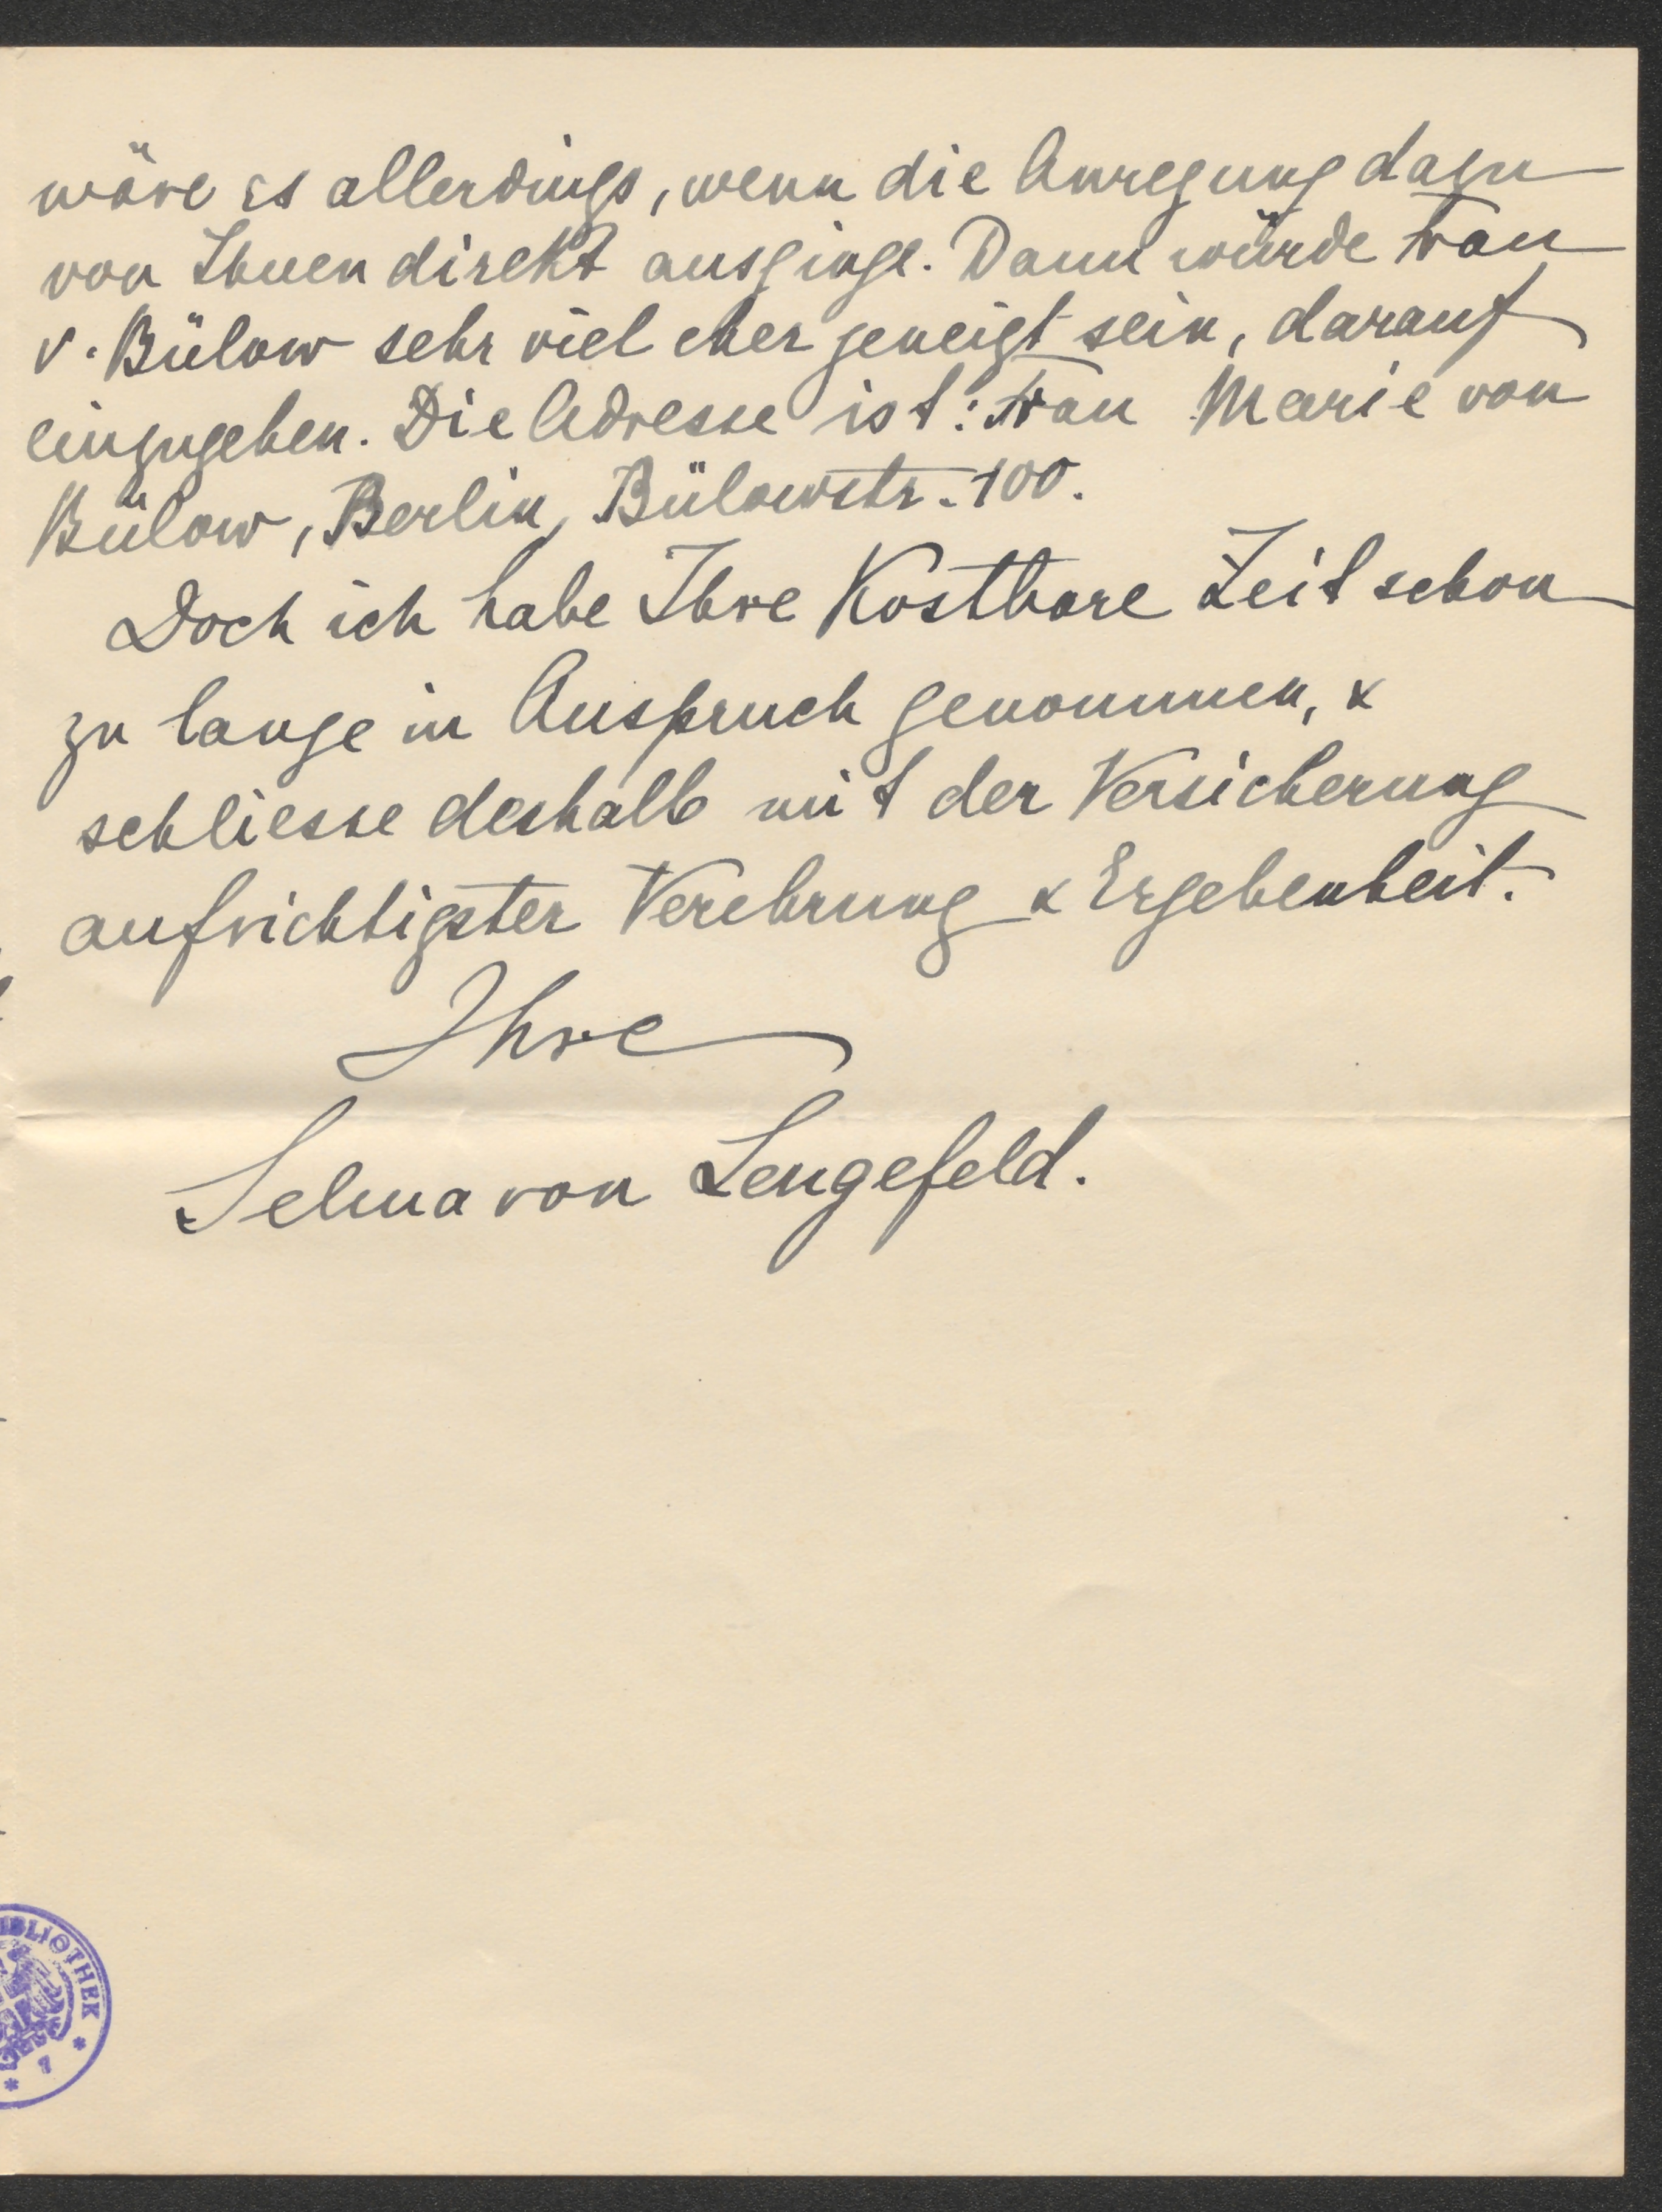 wäre es allerdings, wenn die Anregung dazu
von Ihnen direkt ausginge. Dann würde Frau
v. Bülow sehr viel eher geneigt sein, darauf
einzugehen. Die Adresse ist: Frau Marie von
Bülow, Berlin, Bülowstr. 100.
Doch ich habe Ihre Kostbare Zeit schon
zu lange in Anspruch genommen, &
schliesse deshalb mit der Versicherung
aufrichtigster Verehrung & Ergebenheit.
Ihre
Selma von Lengefeld.
BIBLIOTHEK
* 7 *